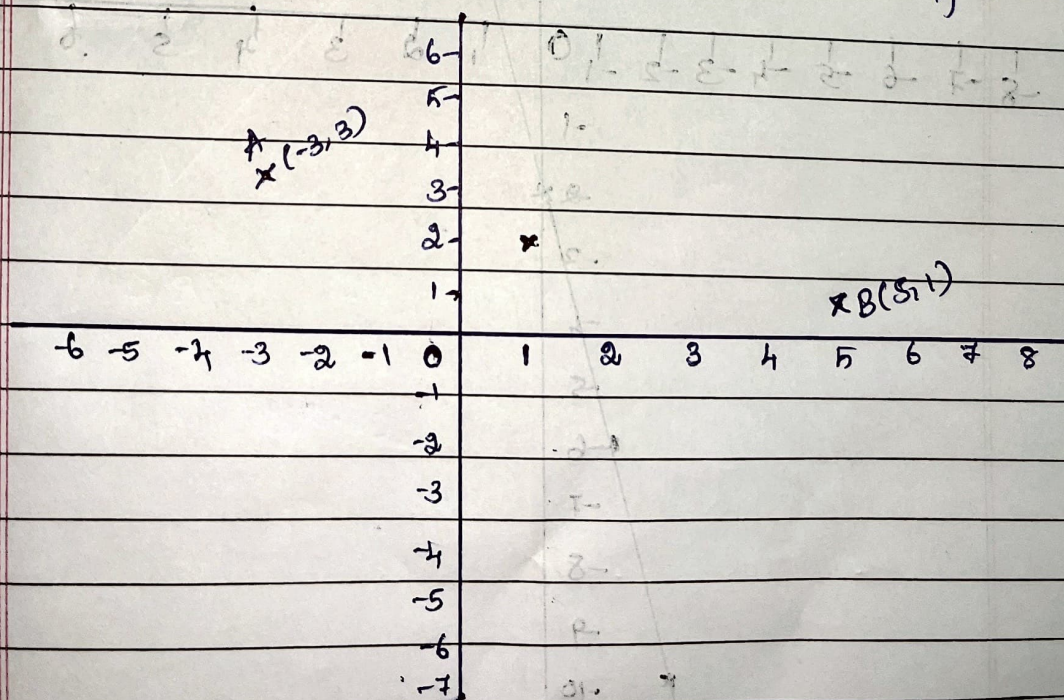 6
5
A (-3, 3)
4
3
2
1
B (5, 1)
-6 -5 -4 -3 -2 -1 0 1 2 3 4 5 6 7 8
-1
-2
-3
-4
-5
-6
-7